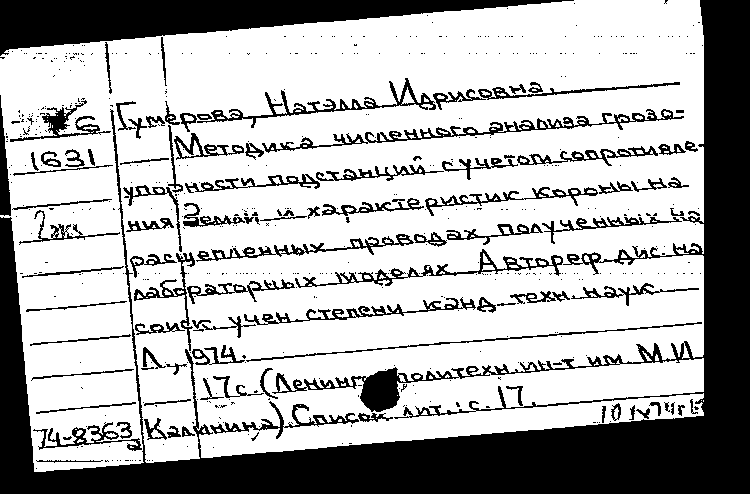 Б Гумерова, Натэлла Идрисовна.
1631 Методика численного анализа грозо-
упорности подстанций с учетом сопротивле-
2 экз ния Земли и характеристик короны на
расщепленных проводах, полученных на
лабораторных моделях. Автореф. дис. на
соиск. учен. степени канд. техн. наук.
Л., 1974.
17 с. (Ленингр политехн. ин-т им. М.И
74-8363а Калинина). Список лит.: с. 17.
10 IX 74г